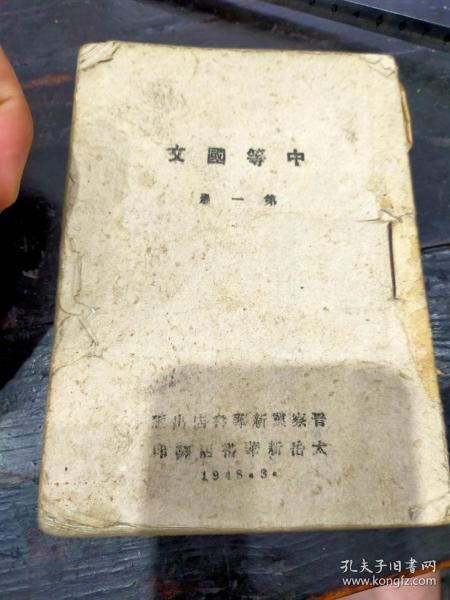 中等國文
第一冊
晉察冀新華書店出版
太岳新華書店翻印
1948.3.
孔夫子旧书网
www.kongfz.com